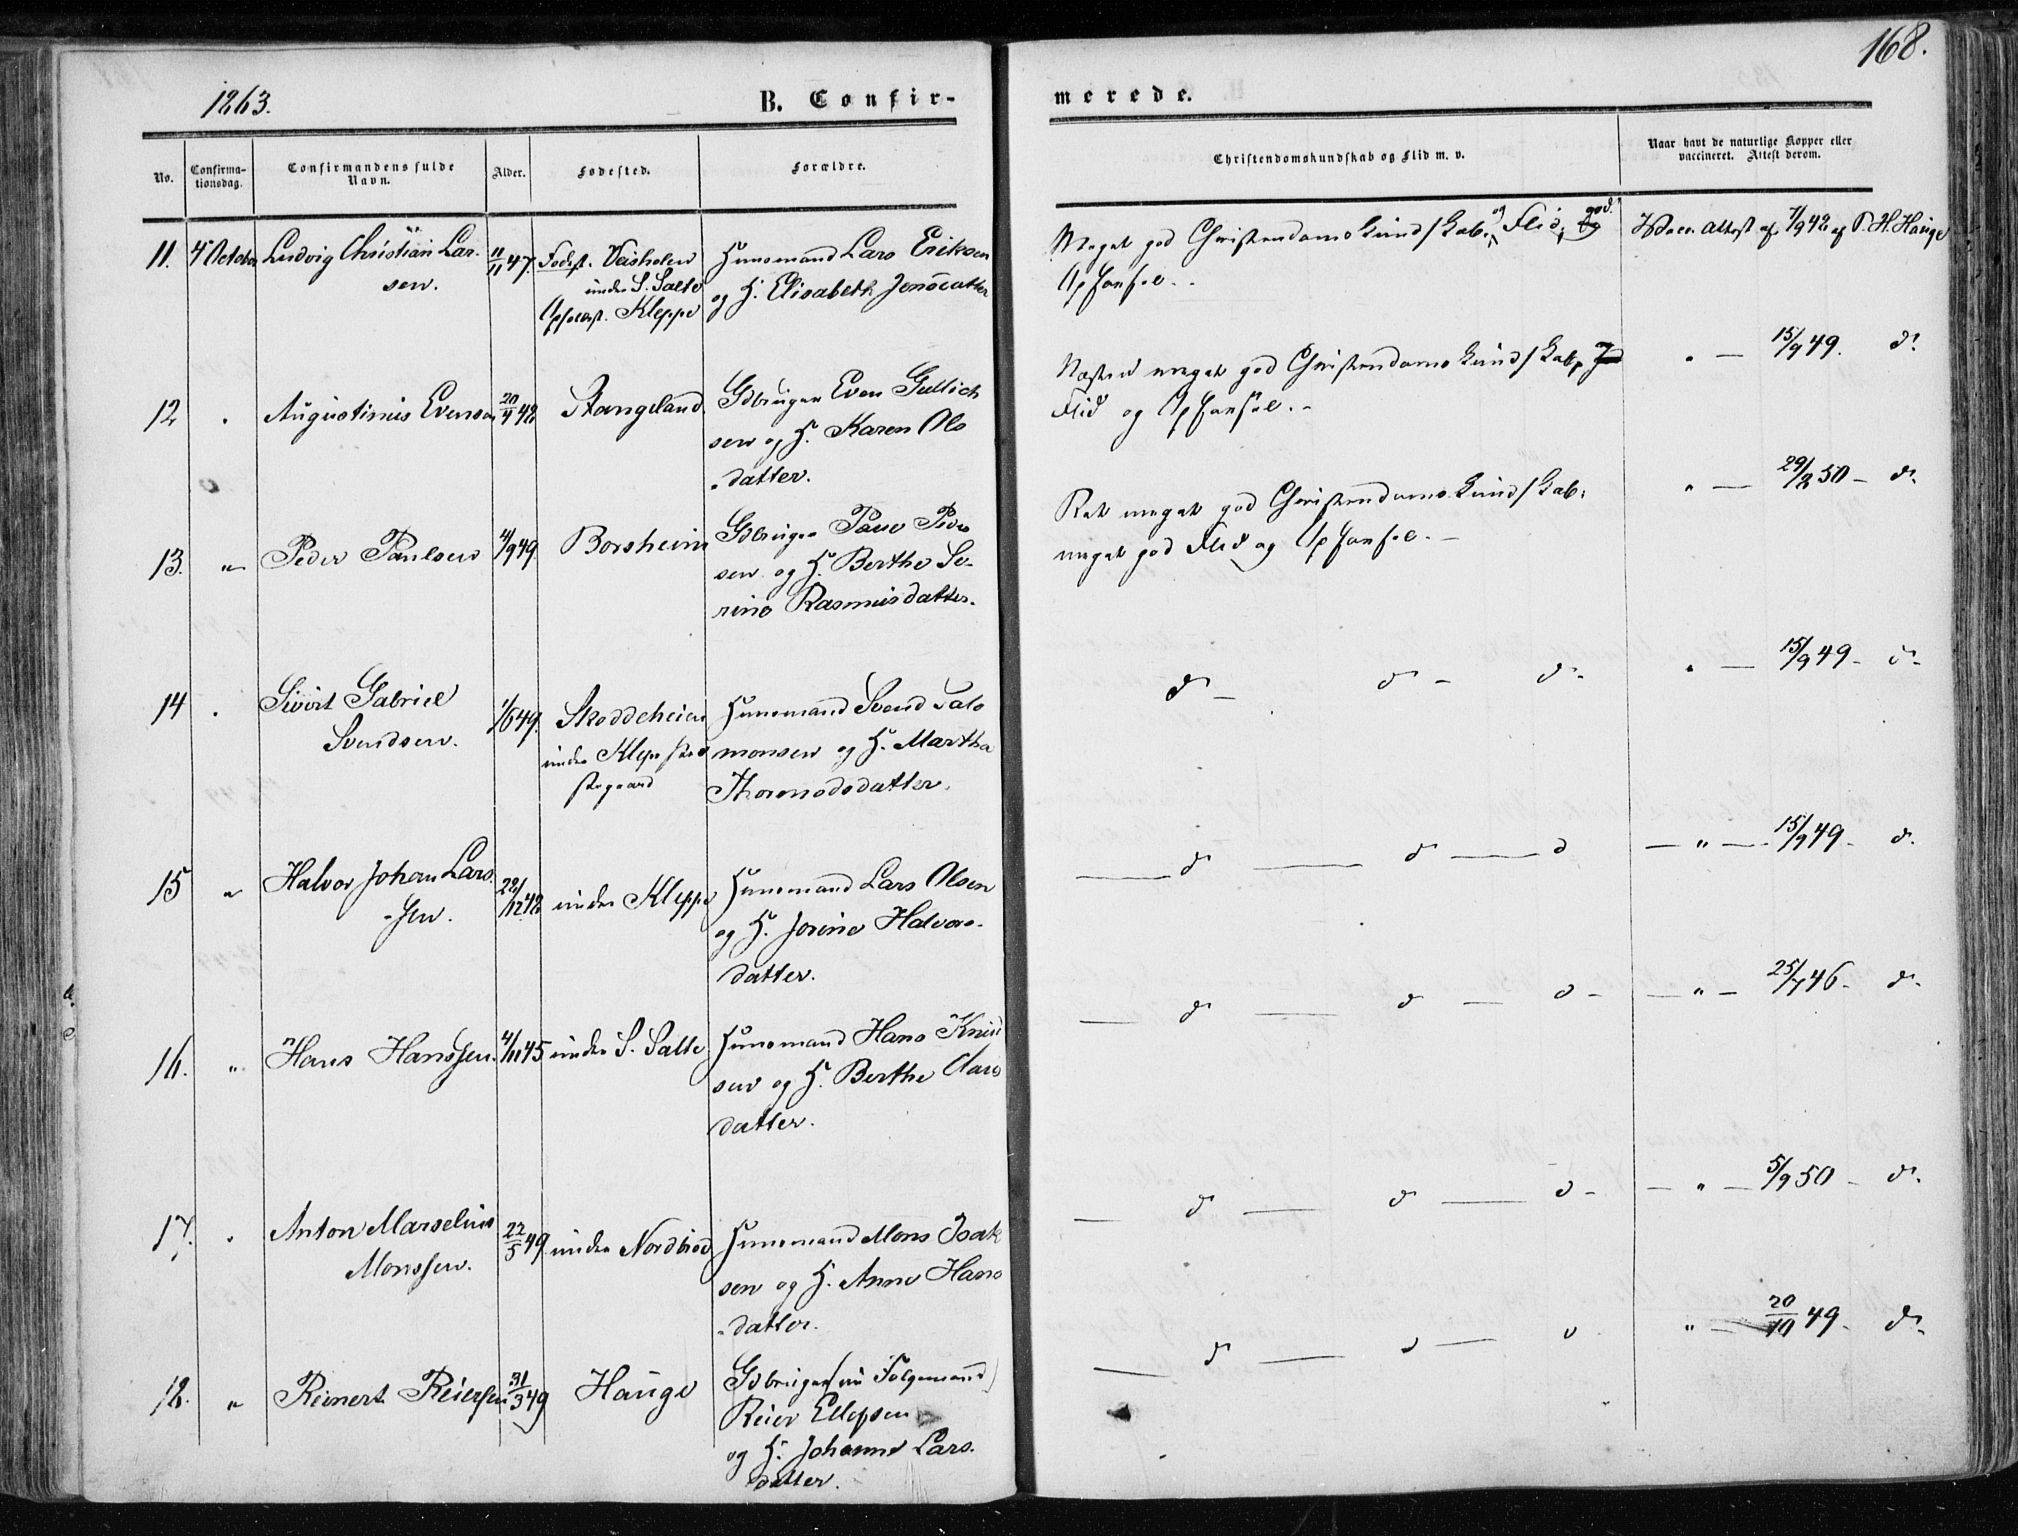 168.
1863.
B. Confir-
merede.
No.
Confirma-
tionsdag.
Confirmandens fulde
Navn.
Alder.
Fødested.
Forældre.
Christendomskundskab og Flid m. v.
Naar havt de naturlige Kopper eller
vaccineret. Attest derom.
11. 4 October Ludvig Christian Lar- 11/11 47. Fødest. Husmand Lars Eriksen
sen. under S. Salte og H. Elisabeth Jensdatter
Opfostst. Kleppe
Meget god Christendomskundskab, og Flid, god.
Opførsel.
Vacc. Attest af 7/9 48 af P. H. Hauge
12 " Augustinus Evensen 20/4 48 Stangeland. Gdbruger Even Gullich
sen og H. Karen Ols
datter.
Næsten meget god Christendomskundskab,
Flid og Opførsel.
" — 15/9 49. do
13. " Peder Paulsen 4/9 49. Borsheim Gdbruger Paul Peder
sen og H. Berthe Se-
rine Rasmusdatter.
Ret meget god Christendomskundskab.
meget god Flid og Opførsel.
" — 29/8 50 — do
14 " Sivert Gabriel 1/6 49. Skoddeheien Husmand Svend Salo
Svendsen. under Klep monsen og H. Martha
Thormodsdatter.
do — do — do
" — 15/9 49 — do
15 " Halvor Johan Lars- 22/12 48 under Kleppe Husmand Lars Olsen
sen. og H. Jorine Halvors-
datter.
do — do — do
— " — 15/9 49 — do
16. " Hans Hanssen. 4/11 45 under S. Salte Husmand Hans Knud
sen og H. Berthe Clars
datter.
do — do — do
— " — 25/7 46 — do
17. " Anton Marselius 22/5 49 under Nordbrød Husmand Mons Isak
Monssen. sen og H. Anne Hans
datter.
do — do — do
— " — 5/9 50 — do
18. " Reinert Reiersen 31/3 49 Hauge Gdbruger (nu Folgemand)
Reier Ellefsen
og H. Johanne Lars-
datter.
do — do — do
" — 20/10 49 — do